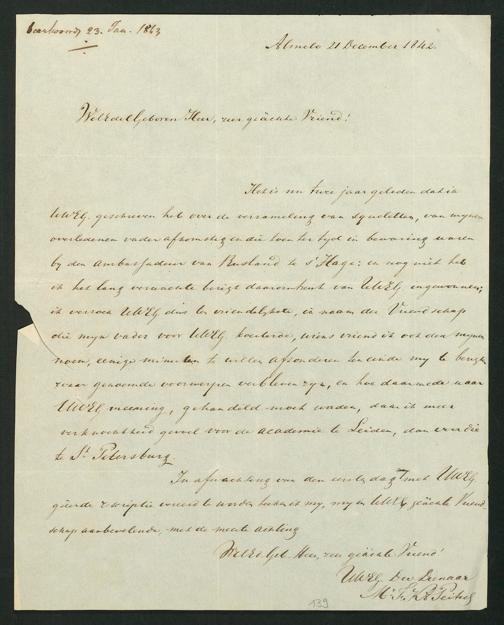 beantwoord 23. Jan. 1843
Almelo 21 December 1842.
WelEdelGeboren Heer, zeer geächte Vriend!
Het is nu twee jaar geleden dat ik
UWEG. geschreven heb over de verzameling van squeletten, van mynen
overledenen vader afkomstig en die toen ter tyd in bewaring waren
by den Ambassadeur van Rusland te s'Hage: en nog niet heb
ik het lang verwachte berigt daaromtrent van UWEG ingewonnen;
ik verzoek UWEG dus ten vriendelykste, in naam der Vriendschap
die myn vader voor UWEG koesterde, wiens vriend ik ook den mynen
noem, eenige minuten te willen afzonderen ten einde my te berigten
waar genoemde voorwerpen verbleven zyn, en hoe daarmede naar
UWEG meening, gehandeld moet worden, daar ik meer
verknochtheid gevoel voor de academie te Leiden, dan voor die
te St. Petersburg.
In afwachting van den eersten dag met UWEG
geëerde rescriptie vereerd te worden teeken ik my, my in UWEG geächte Vriend
schap aanbevelende, met de meeste achting
WelEd. Geb. Heer, zeer geächte Vriend!
UWEG. Dw Dienaar
Mr. F.
139